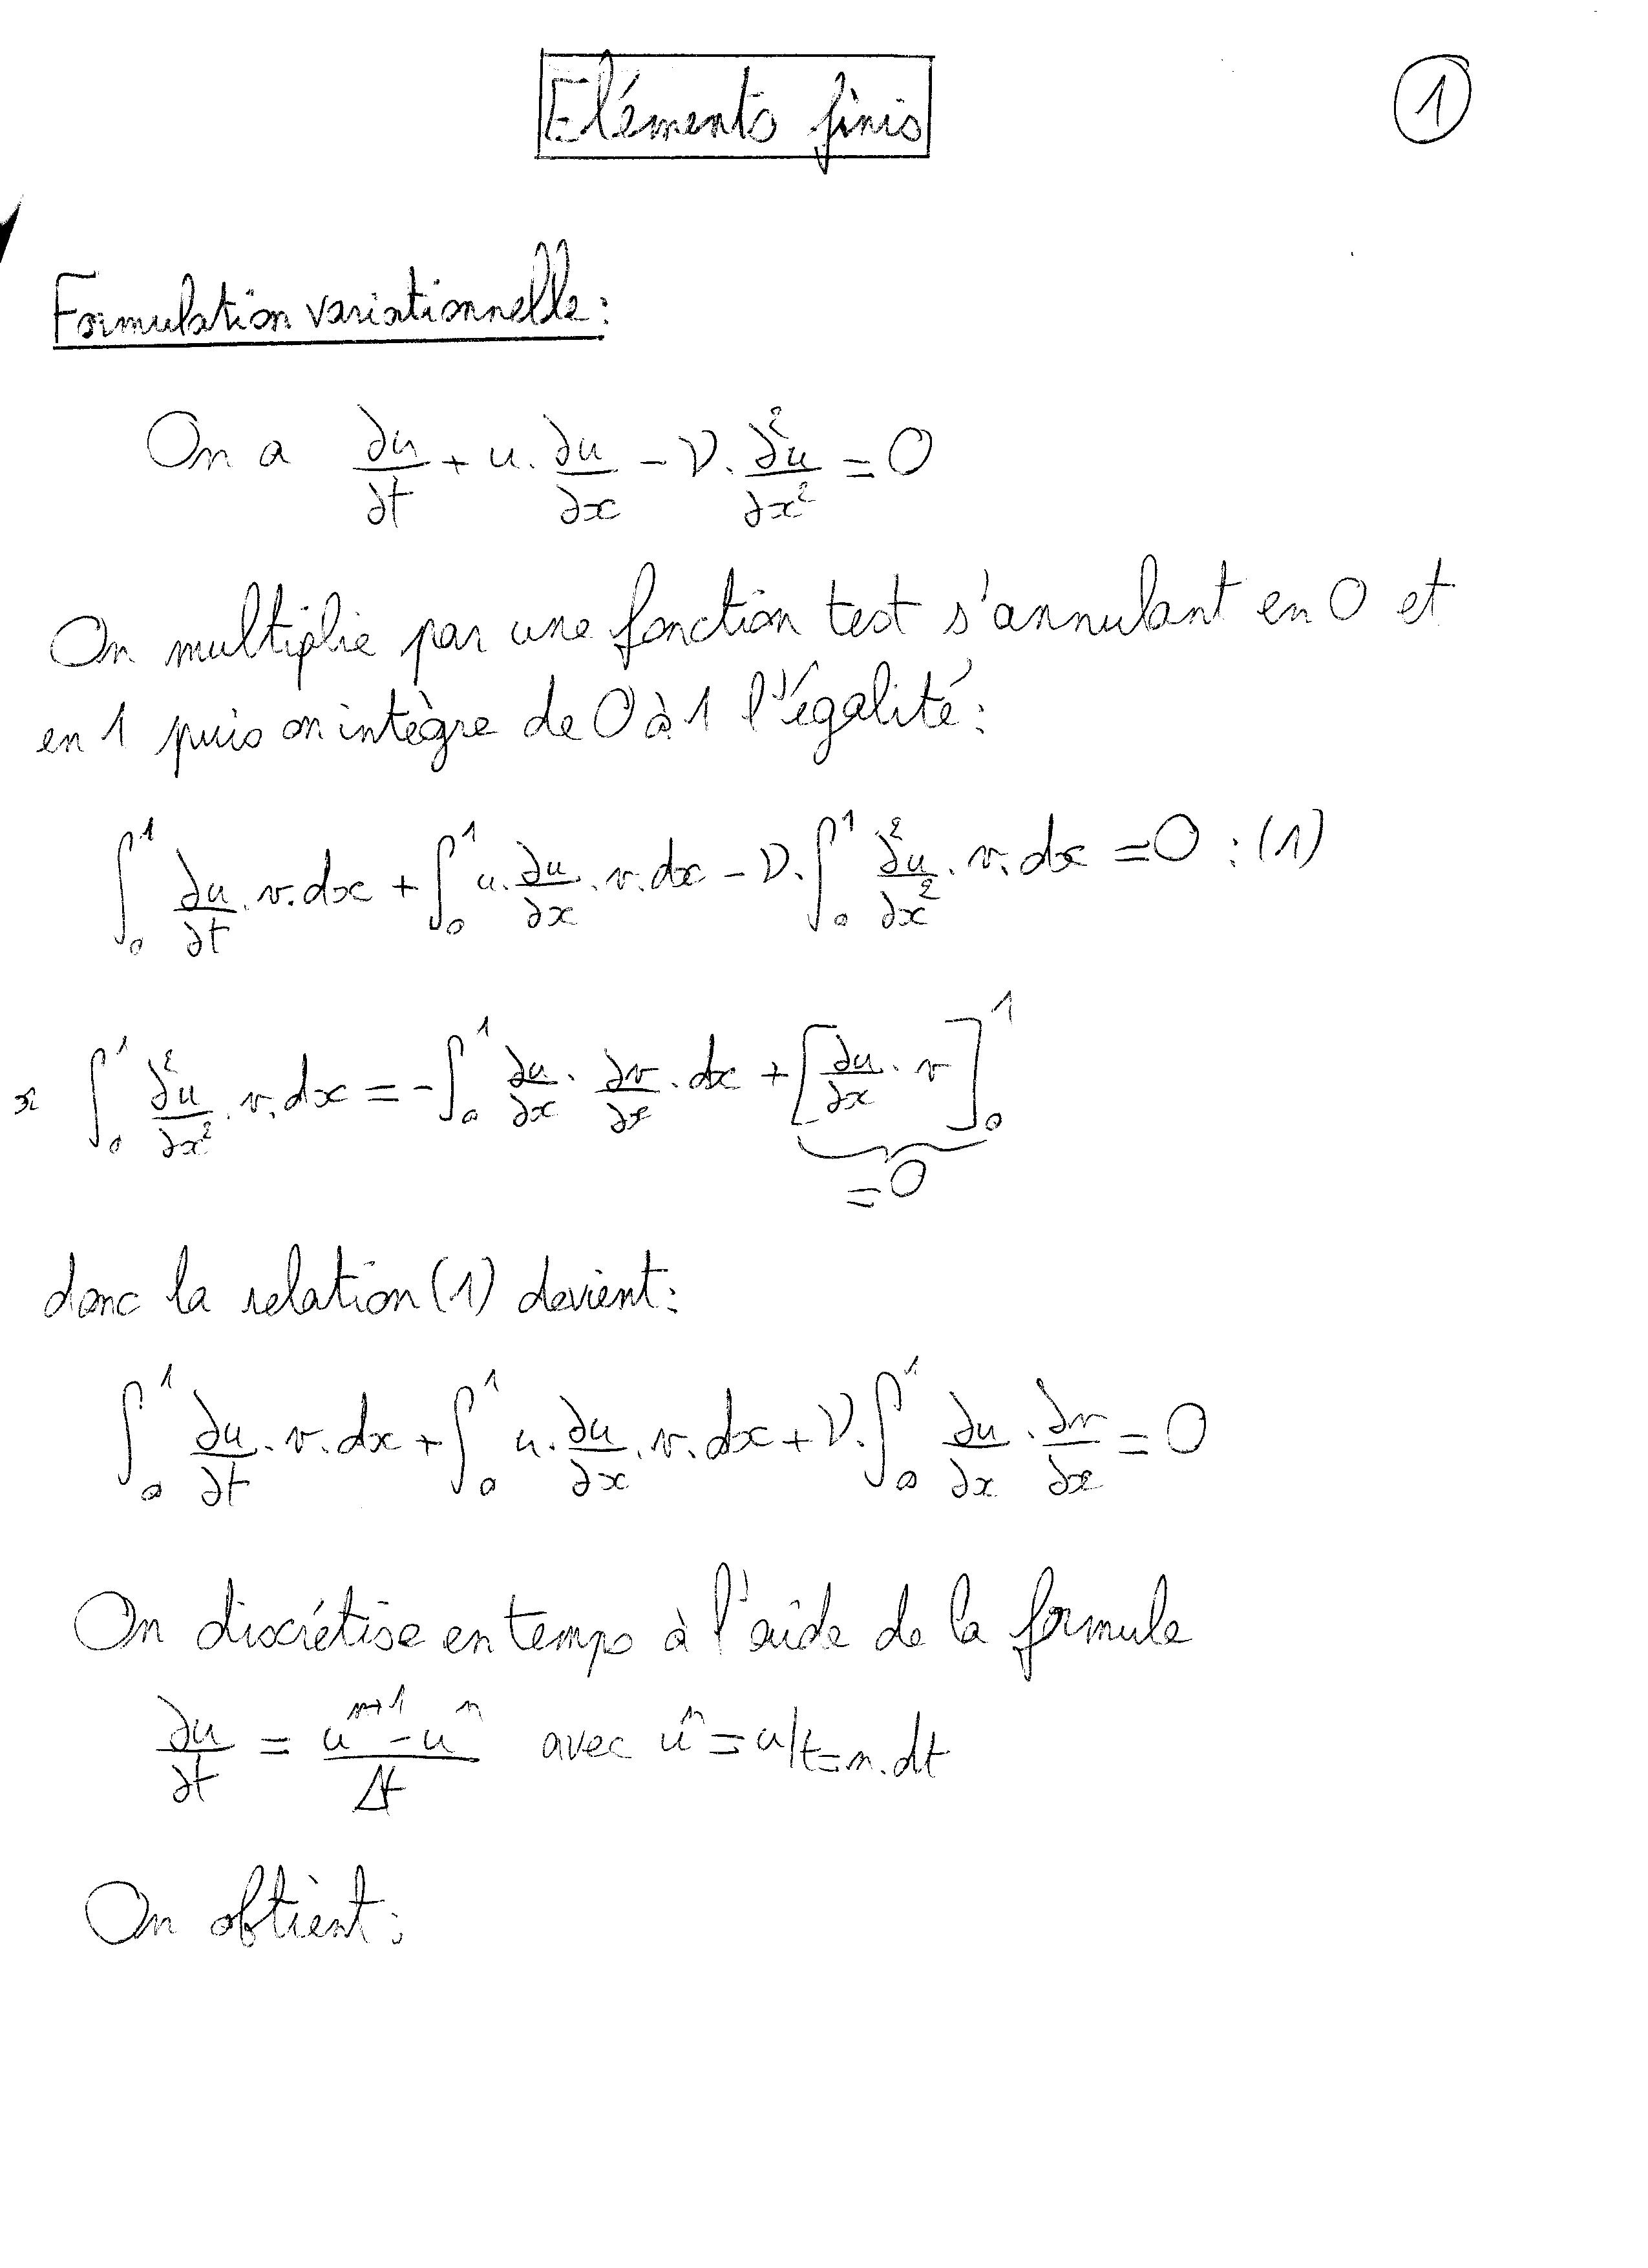 Eléments finis
1
Formulation variationnelle:
On a ∂u/∂t + u.∂u/∂x - ν.∂²u/∂x² = 0
On multiplie par une fonction test s'annulant en 0 et
en 1 puis on intègre de 0 à 1 l'égalité:
∫₀¹ ∂u/∂t.v.dx + ∫₀¹ u.∂u/∂x.v.dx - ν.∫₀¹ ∂²u/∂x².v.dx = 0 : (1)
× ∫₀¹ ∂²u/∂x².v.dx = -∫₀¹ ∂u/∂x.∂v/∂x.dx + [∂u/∂x.v]₀¹
= 0
donc la relation (1) devient:
∫₀¹ ∂u/∂t.v.dx + ∫₀¹ u.∂u/∂x.v.dx + ν.∫₀¹ ∂u/∂x.∂v/∂x = 0
On discrétise en temps à l'aide de la formule
∂u/∂t = (uⁿ⁺¹ - uⁿ)/Δt avec uⁿ = u/t=n.dt
On obtient: